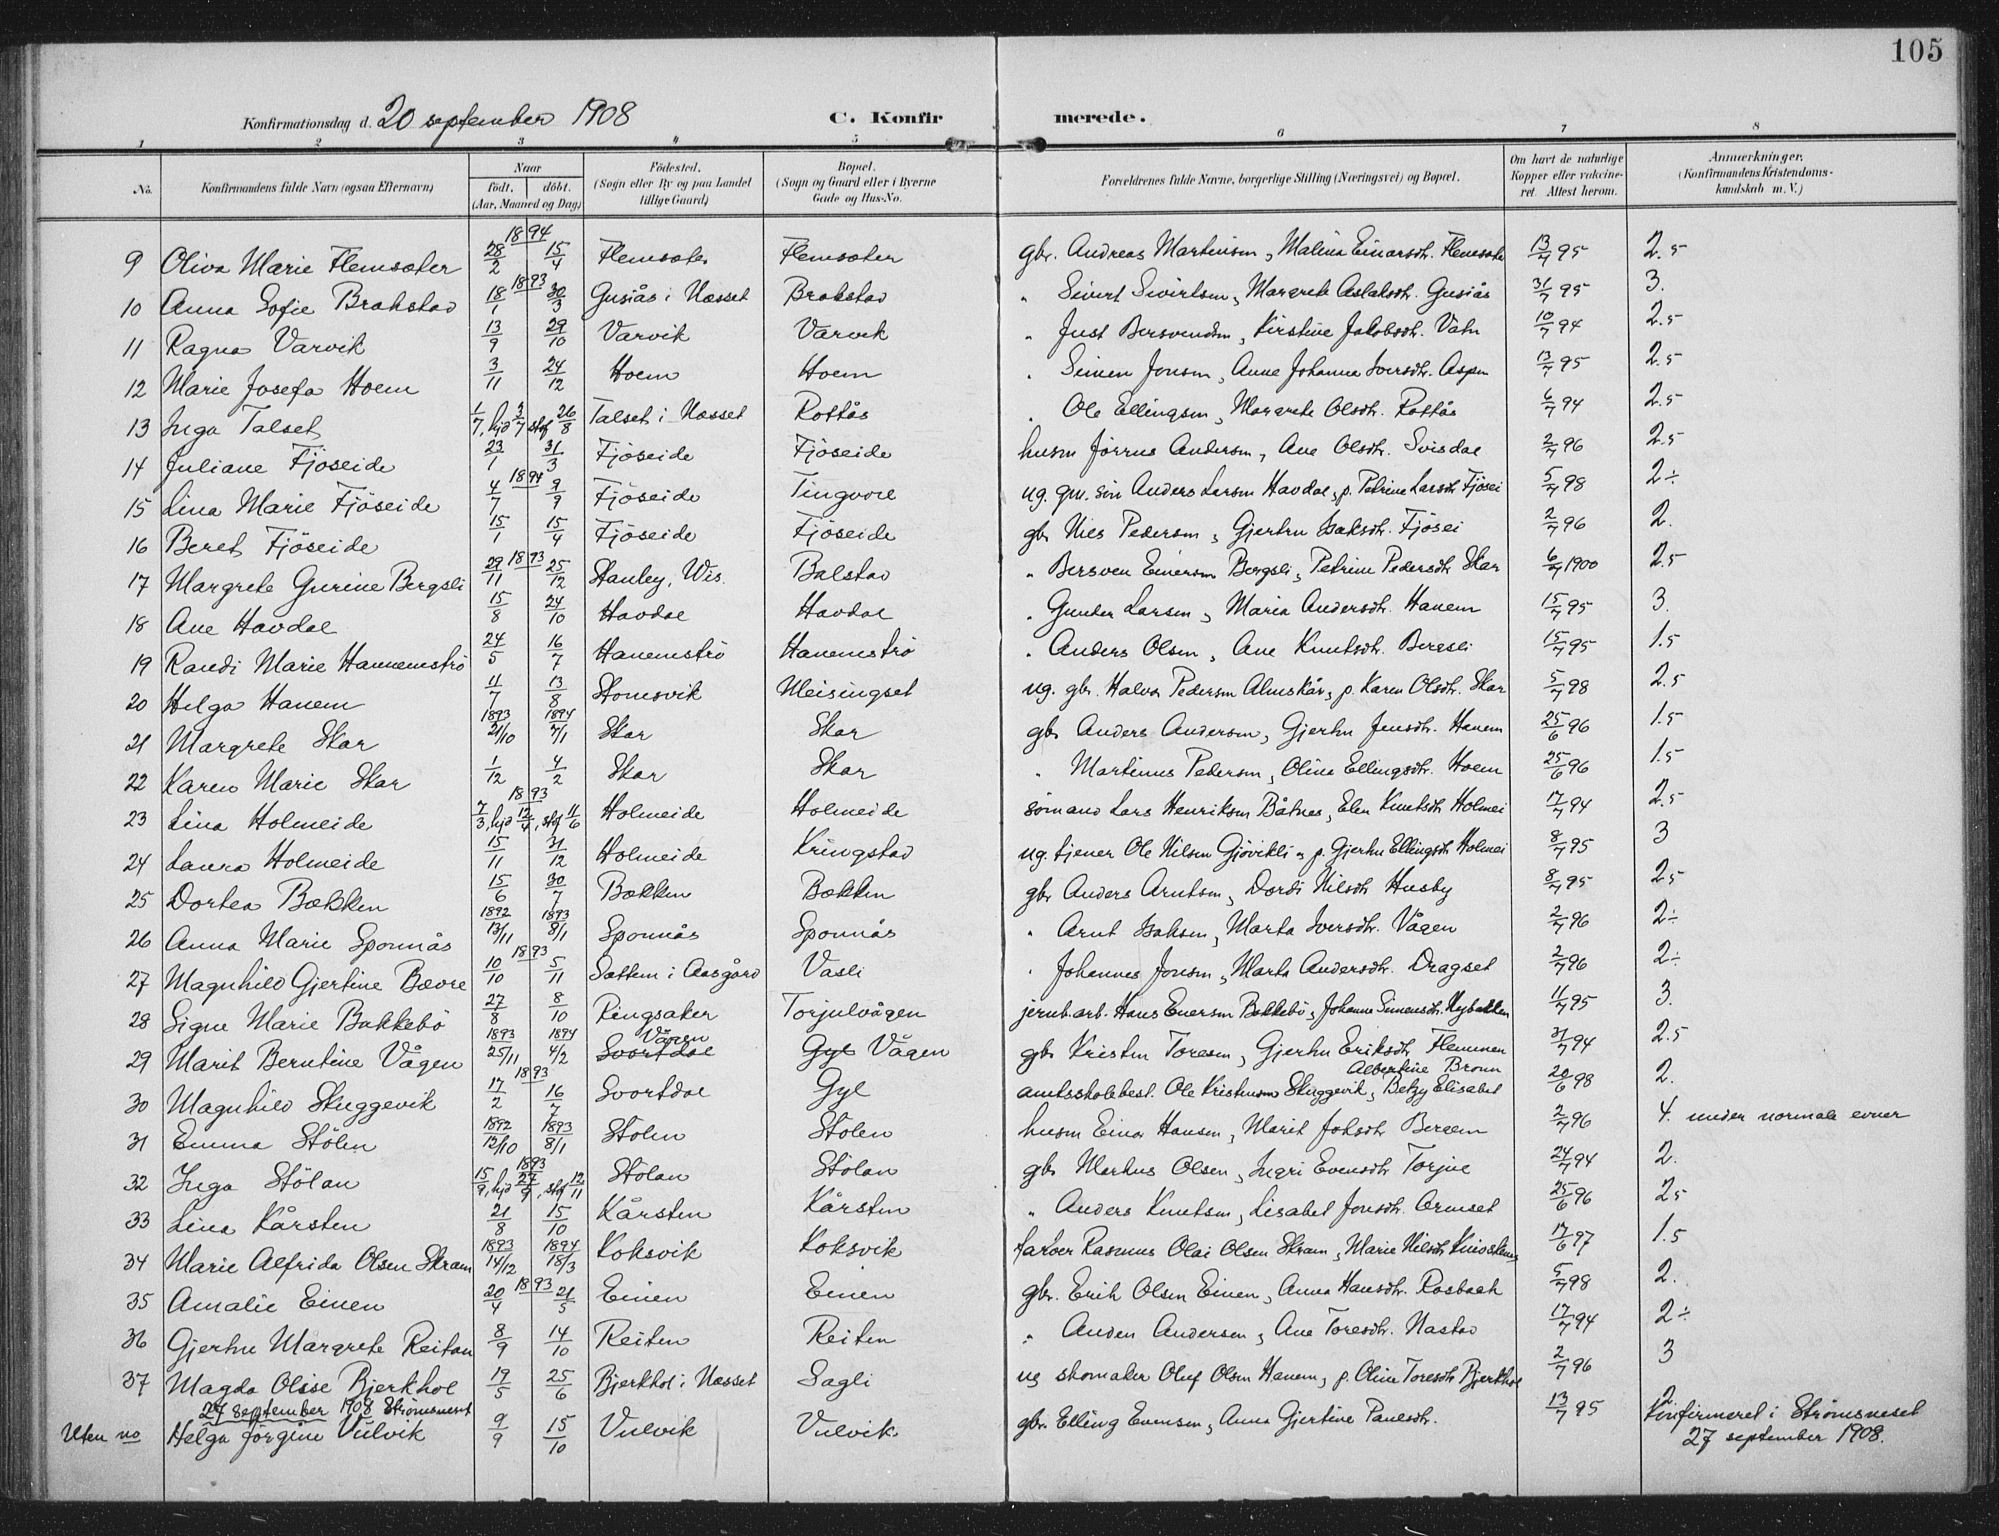 105
Konfirmationsdag d. 20 september 1908 C. Konfir merede.
1 2 3 4 5 6 7 8
No. Konfirmandens fulde Navn (ogsaa Efternavn) Naar født. døbt. (Aar, Maaned og Dag) Fødested. (Sogn eller By og paa Landet tillige Gaard) Bopæl. (Sogn og Gaard eller i Byerne Gade og Hus-No. Forældrenes fulde Navne, borgerlige Stilling (Næringsvei) og Bopæl. Om havt de naturlige Kopper eller vakcineret. Attest herom. Anmærkninger. (Konfirmandens Kristendomskundskab m. V.)
1894
9 Oliva Marie Flemsæter 28/2 15/4 Flemsæter Flemsæter gbr. Andreas Martinsen, Malina Einarsdtr. Flemsæter 13/7 95 2.5
1893
10 Anna Sofie Brakstad 18/1 30/3 Gusiås i Næsset Brakstad " Sivert Sivertsen, Margrete Aslaksdtr. Gusiås 31/7 95 3.
11 Ragna Varvik 13/9 29/10 Varvik Varvik " Just Bersvendsen, Kirstine Jakobsdtr. Vatn 10/7 94 2.5
12 Marie Josefa Hoem 3/11 24/12 Hoem Hoem " Simen Jonsen, Anne Johanna Iversdtr. Aspen 13/7 95 2.5
13 Inga Talset 1/7, hjd 3/7 stf 26/8 Talset i Næsset Rottås " Ole Ellingsen, Margrete Olsdtr. Rottås 6/7 94 2.5
14 Juliane Fjøseide 23/1 31/3 Fjøseide Fjøseide husm Jørnus Andersen, Ane Olsdtr. Svisdal 2/7 96 2.5
1894
15 Lina Marie Fjøseide 4/7 9/9 Fjøseide Tingvoll ug. gm. søn Anders Larsen Havdal, p. Petrine Larsdtr Fjøsei 5/7 98 2÷
16 Beret Fjøseide 15/1 15/4 Fjøseide Fjøseide gbr Nils Pedersen, Gjertru Isaksdtr. Fjøsei 2/7 96 2.
1893
17 Margrete Gurine Bergsli 29/11 25/12 Stanley, Wis. Balstad " Bersven Einersen Bergsli, Petrine Pedersdtr Skar 6/7 1900 2.5
18 Ane Havdal 15/8 24/10 Havdal Havdal " Gunder Larsen, Maria Andersdtr. Hanem 15/7 95 3.
19 Randi Marie Hanemstrø 24/5 16/7 Hanemstrø Hanemstrø " Anders Olsen, Ane Knutsdtr. Bergsli 15/7 95 1.5
20 Helga Hanem 11/7 13/8 Stomsvik Meisingset ug. gbr. Halvor Pedersen Almskår, p. Karen Olsdtr. Skar 5/7 98 2.5
1893 1894
21 Margrete Skar 21/10 7/1 Skar Skar gbr Anders Andersen, Gjertru Jensdtr. Hanem 25/6 96 1.5
22 Karen Marie Skar 1/12 4/2 Skar Skar " Martinus Pedersen, Olina Ellingsdtr. Hoem 25/6 96 1.5
1893
23 Lina Holmeide 7/3, hjd 12/4, stf 11/6 Holmeide Holmeide sømand Lars Henriksen Båtnes, Elen Knutsdtr Holmei 17/7 94 2.5
24 Laura Holmeide 15/11 31/12 Holmeide Kringstad ug. tjener Ole Nilsen Gjøvikli, p. Gjertru Ellingsdtr Holmei 8/7 95 3
25 Dortea Bækken 15/6 30/7 Bækken Bækken gbr Anders Arntsen, Dordi Nilsdtr Husby 8/7 95 2.5
1892 1893
26 Anna Marie Sponnås 13/11 8/1 Sponnås Sponnås " Arnt Isaksen, Marta Iversdtr. Vågen 2/7 96 2÷
1893
27 Magnhild Gjertine Bævre 10/10 5/11 Sattem i Aasgård Vasli " Johannes Jonsen, Marta Andersdtr. Dragset 2/7 96 2÷
28 Signe Marie Bakkebø 27/8 8/10 Ringsaker Torjulvågen jernb.arb. Hans Enersen Bakkebø, Johanne Simensdtr. Nybakken 11/7 95 3.
1893 1894 Vågen
29 Marit Berntine Vågen 25/11 4/2 Svortdal Gyl Vågen gbr Kristen Toresen, Gjertru Eriksdtr Flemmen 31/7 94 2.5
1893 Albertine Brown
30 Magnhild Skuggevik 17/2 16/7 Svortdal Gyl amtsskolebest. Ole Kristensen Skuggevik, Betzy Elisabet 20/6 98 2.
1892 1893
31 Emma Stølen 12/10 8/1 Stølen Stølen husm Einar Hansen, Marit Joksdtr Bergem 2/7 96 4. under normale evner
1893
32 Inga Stølan 15/9, hjd 27/9, stf 12/11 Stølan Stølan gbr Markus Olsen, Ingri Evensdtr Torjul 24/7 94 2.
33 Lina Kårsten 21/8 15/10 Kårsten Kårsten " Anders Knutsen, Lisabet Jonsdtr. Ormset 25/6 96 2.5
1893 1894
34 Marie Alfrida Olsen Skram 14/12 18/3 Koksvik Koksvik farver Rasmus Olai Olsen Skram, Marie Nilsdtr 17/6 97 1.5
1893
35 Amalie Einen 20/4 21/5 Einen Einen gbr. Erik Olsen Einen, Anna Hansdtr. Rosbach 5/7 98 2.
36 Gjertru Margrete Reiten 8/9 14/10 Reiten Reiten " Anders Andersen, Ane Toresdtr. Nastad 17/7 94 2÷
37 Magda Olise Bjerkhol 19/5 25/6 Bjerkhol i Næsset Sagli ug skomaker Oluf Olsen Hanem, p. Oline Toresdtr Bjerkhol 2/7 96 3
27 september 1908 Strømsneset
Uten no Helga Jørgine Vulvik 9/9 15/10 Vulvik Vulvik gbr. Elling Evensen, Anna Gjertine Paulsdtr. 13/7 95 2. Konfirmeret i Strømsneset
27 september 1908.